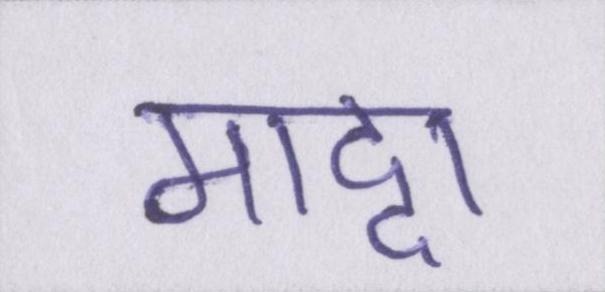 माद्दा